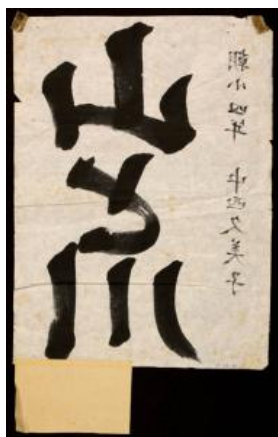 山と川
朝小四年 中西久美子